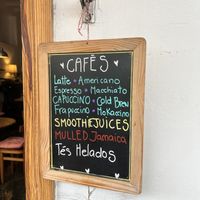 CAFÈS
Latte • Americano
Espresso • Macchiato
CAPUCCINO • Cold Brew
Frapuccino • Mokaccino
SMOOTHEJUICES
MULLED Jamaica
Tés Helados